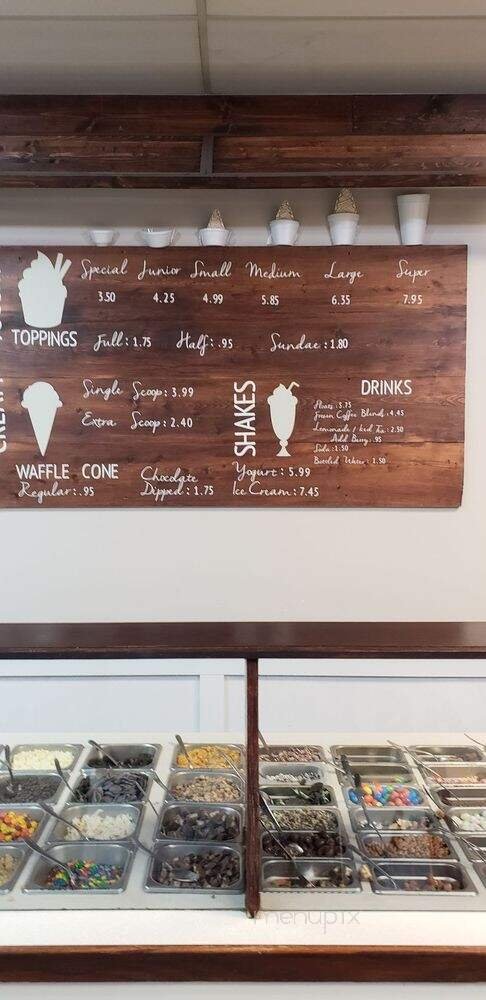 Special Junior Small Medium Large Super
3.50 4.25 4.99 5.85 6.35 7.95
TOPPINGS
Full: 1.75 Half: .95 Sundae: 1.80
Single Scoop: 3.99
Extra Scoop: 2.40
WAFFLE CONE
Regular: .95
Chocolate
Dipped: 1.75
SHAKES
Yogurt: 5.99
Ice Cream: 7.45
DRINKS
Floats: 3.75
Frozen Coffee Blends: 4.45
Lemonade / Iced Tea: 2.50
Add Berry: .95
Soda: 1.50
Bottled Water: 1.50
menupix